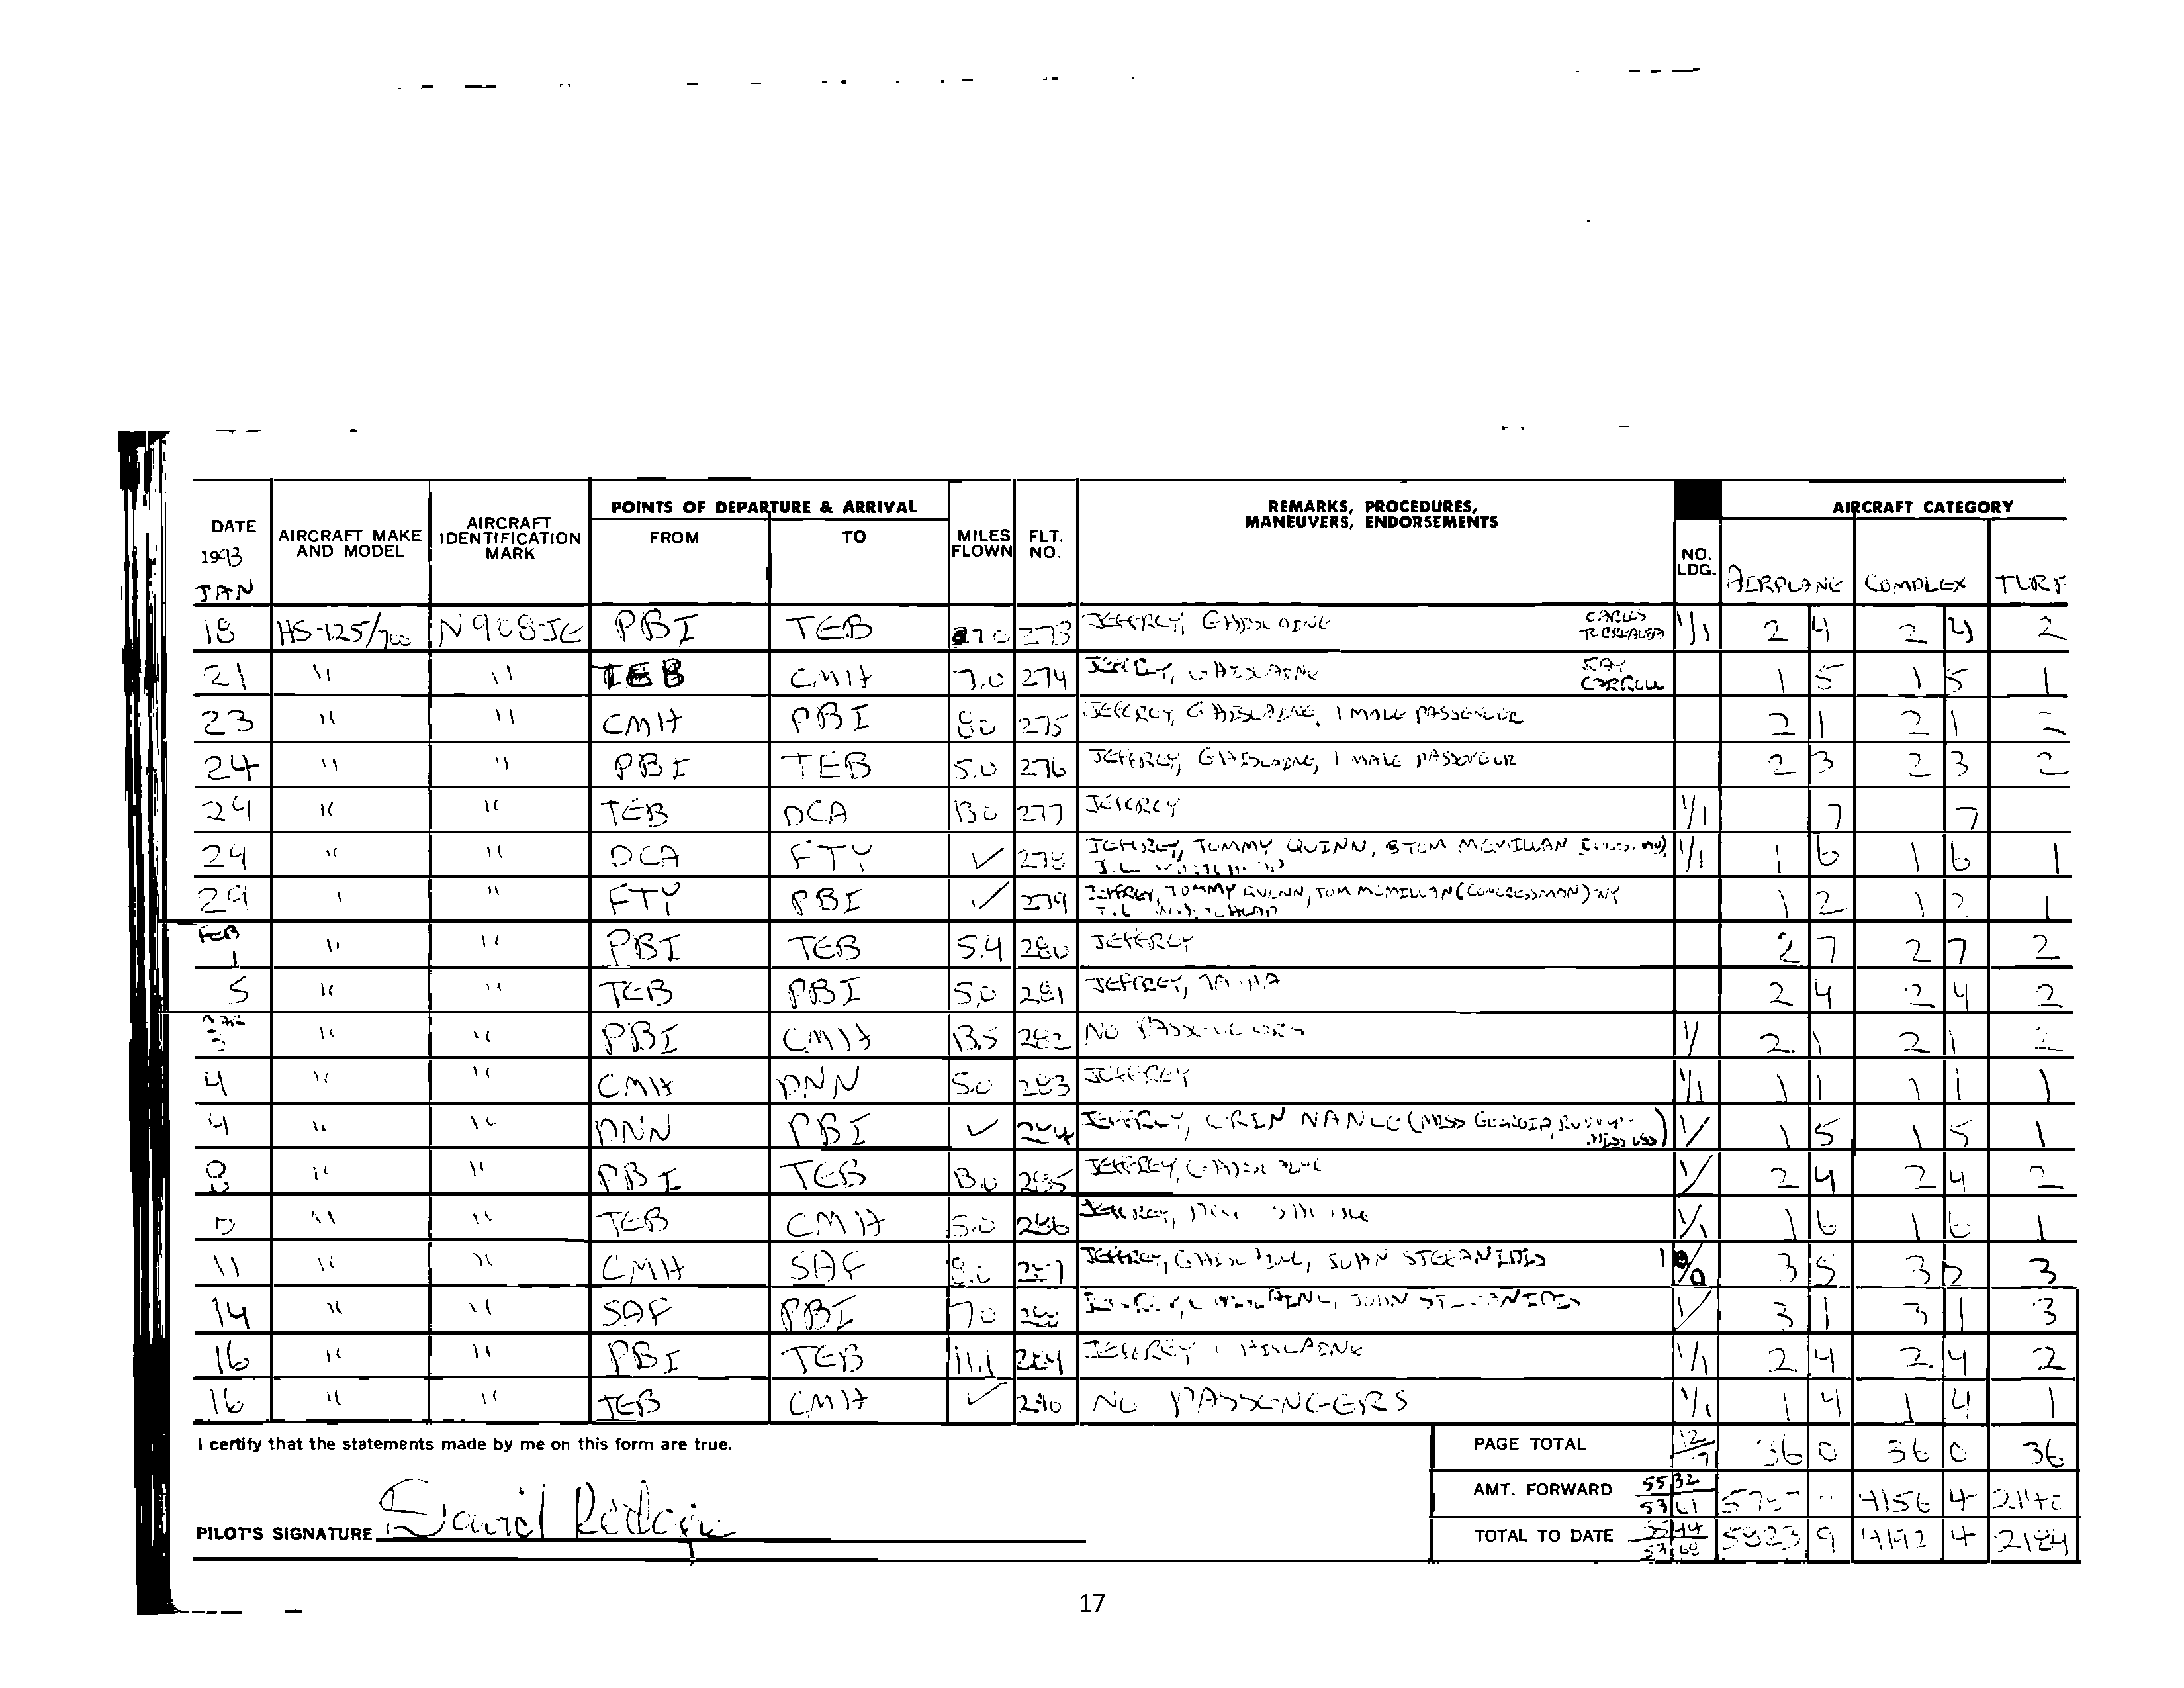 DATE AIRCRAFT MAKE AND MODEL AIRCRAFT IDENTIFICATION MARK POINTS OF DEPARTURE & ARRIVAL FROM TO MILES FLOWN FLT. NO. REMARKS, PROCEDURES, MANEUVERS, ENDORSEMENTS NO. LDG. AIRCRAFT CATEGORY
1993
JAN AIRPLANE COMPLEX
18 HS-125/700 N908JE PBI TEB 273 JEFFREY, GHISLAINE CARLOS 1/1 2 4 2 4 2
21 " " TEB CMH 7.0 274 JEFFREY, GHISLAINE 1 5 1 5 1
23 " " CMH PBI 8.0 275 JEFFREY, GHISLAINE, 1 MALE PASSENGER 2 1 2 1
24 " " PBI TEB 5.0 276 JEFFREY, GHISLAINE, 1 MALE PASSENGER 2 3 2 3 2
29 " " TEB DCA 13.0 277 JEFFREY 1/1 7 7
29 " " DCA FTY ✓ 278 JEFFREY, TOMMY QUINN, TOM MCMILLAN 1/1 1 6 1 6 1
J.L.
29 " " FTY PBI ✓ 279 JEFFREY, TOMMY QUINN, TOM MCMILLAN (CONGRESSMAN) NY 1 2 1 2 1
FEB
1 " " PBI TEB 5.4 280 JEFFREY 2 7 2 7 2
5 " " TEB PBI 5.0 281 JEFFREY, 2 4 2 4 2
" " PBI CMH 13.5 282 NO PASSENGERS 1/ 2 1 2 1 2
4 " " CMH DNN 5.0 283 JEFFREY 1/1 1 1 1 1 1
4 " " DNN PBI ✓ 284 JEFFREY, NANCE (MISS GEORGIA, 1/ 1 5 1 5 1
" " PBI TEB 13.0 285 JEFFREY, GHISLAINE 1/ 2 4 2 4 2
" " TEB CMH 5.0 286 JEFFREY, 1/1 1 6 1 6 1
11 " " CMH SAF 8.0 287 JEFFREY, GHISLAINE, JOHN STEFANIDIS 3 5 3 5 3
14 " " SAF PBI 7.0 288 JEFFREY, GHISLAINE, JOHN STEFANIDIS 1/ 3 1 3 1 3
16 " " PBI TEB 11.1 289 JEFFREY, GHISLAINE 1/1 2 4 2 4 2
16 " " TEB CMH ✓ 290 NO PASSENGERS 1/1 1 4 1 4 1
I certify that the statements made by me on this form are true. PAGE TOTAL 12/7 36 0 36 0 36
AMT. FORWARD 5532 4156 4
PILOT'S SIGNATURE David Rodgers TOTAL TO DATE 5823 9 4192 4 2184
17